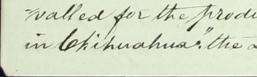 walled for the produ
in Chihuahua," the